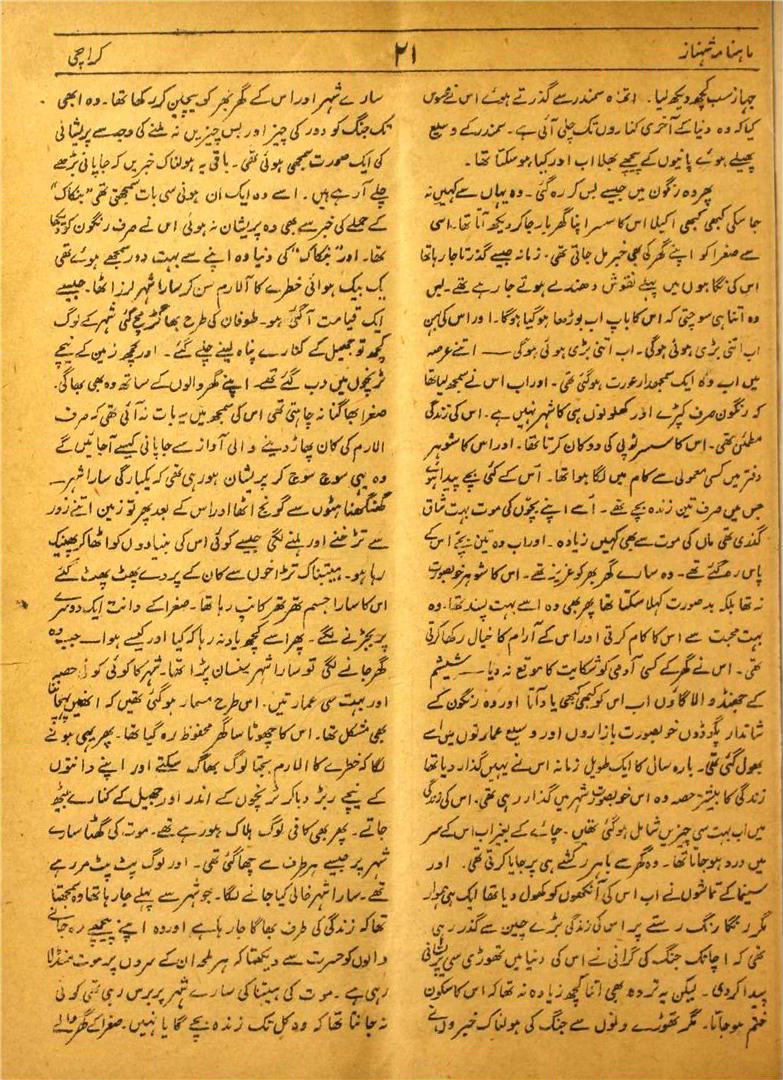 ماہنامہ شہناز
۲۱
کراچی
جہاز سب کچھ دیکھ لیا۔ اتھاہ سمندر سے گذرتے ہوئے اس نے محسوس
کیا کہ وہ دنیا کے آخری کناروں تک چلی آئی ہے۔ سمندر کے وسیع
پھیلے ہوئے پانیوں کے پیچھے بھلا اب اور کیا ہو سکتا تھا۔
پھر وہ رنگون میں جیسے بس کر رہ گئی۔ وہ یہاں سے کہیں نہ
جا سکی کبھی کبھی اکیلا اس کا سسر اپنا گھر بار جا کر دیکھ آتا تھا۔ اسی
سے صغرا کو اپنے گھر کی بھی خبر مل جاتی تھی۔ زمانہ جیسے گذرتا جا رہا تھا
اس کی نگاہوں میں پہلے نقوش دھندلے ہوتے جا رہے تھے۔ بس
وہ اتنا ہی سوچتی کہ اس کا باپ اب بوڑھا ہو گیا ہوگا۔ اور اس کی بہن
اب اتنی بڑی ہوئی ہوگی۔ اب اتنی بڑی ہوئی ہوگی —— اتنے عرصہ
میں اب وہ ایک سمجھدار عورت ہو گئی تھی۔ اور اب اس نے سمجھ لیا تھا
کہ رنگون صرف کپڑے اور کھلونوں ہی کا شہر نہیں ہے۔ اس کی زندگی
مطمئن تھی۔ اس کا سسر ٹوپی کی دوکان کرتا تھا۔ اور اس کا شوہر
دفتر میں کسی معمولی سے کام میں لگا ہوا تھا۔ اس کے کئی بچے پیدا ہوئے
جس میں صرف تین زندہ بچے تھے۔ اسے اپنے بچوں کی موت بہت شاق
گذری تھی ماں کی موت سے بھی کہیں زیادہ۔ اور اب وہ تین بچے اس کے
پاس رہ گئے تھے۔ وہ سارے گھر بھر کو عزیز تھے۔ اس کا شوہر خوبصورت
نہ تھا بلکہ بدصورت کہلا سکتا تھا پھر بھی وہ اسے بہت پسند تھا۔ وہ
بہت محبت سے اس کا کام کرتی اور اس کے آرام کا خیال رکھا کرتی
تھی۔ اس نے گھر کے کسی آدمی کو شکایت کا موقع نہ دیا —— شیشم
کے جھنڈ والا گاؤں اب اس کو کبھی کبھی یاد آتا اور وہ رنگون کے
شاندار پگوڈوں خوبصورت بازاروں اور وسیع عمارتوں میں اسے
بھول گئی تھی۔ بارہ سال کا ایک طویل زمانہ اس نے یہیں گذار دیا تھا
زندگی کا بیشتر حصہ وہ اس خوبصورت شہر میں گذار رہی تھی۔ اس کی زندگی
میں اب بہت سی چیزیں شامل ہو گئی تھیں۔ چائے کے بغیر اب اس کے سر
میں درد ہو جاتا تھا۔ وہ گھر سے باہر رکشے ہی پر جایا کرتی تھی۔ اور
سینما کے تماشوں نے اب اس کی آنکھوں کو کھول دیا تھا ایک ہی ہموار
مگر رنگا رنگ رستے پر اس کی زندگی بڑے چین سے گذر رہی
تھی کہ اچانک جنگ کی گرانی نے اس کی دنیا میں تھوڑی سی پریشانی
پیدا کر دی۔ لیکن یہ تردد بھی اتنا کچھ زیادہ نہ تھا کہ اس کا سکون
ختم ہو جاتا۔ مگر تھوڑے دنوں سے جنگ کی ہولناک خبروں نے
سارے شہر اور اس کے گھر بھر کو بےچین کر رکھا تھا۔ وہ ابھی
تک جنگ کو دور کی چیز اور بس چیزیں نہ ملنے کی وجہ سے پریشانی
کی ایک صورت سمجھی ہوئی تھی۔ باقی یہ ہولناک خبریں کہ جاپانی بڑھے
چلے آ رہے ہیں۔ اسے وہ ایک ان ہونی سی بات سمجھتی تھی "بنکاک"
کے حملے کی خبر سے بھی وہ پریشان نہ ہوئی اس نے صرف رنگون کو دیکھا
تھا۔ اور "بنکاک" کی دنیا وہ اپنے سے بہت دور سمجھے ہوئے تھی
یک بیک ہوائی خطرے کا آلارم سن کر سارا شہر لرز اٹھا۔ جیسے
ایک قیامت آ گئی ہو۔ طوفان کی طرح بھاگڑ مچ گئی شہر کے لوگ
کچھ تو جھیل کے کنارے پناہ لینے چلے گئے۔ اور کچھ زمین کے نیچے
ٹرنچوں میں دب گئے تھے۔ اپنے گھر والوں کے ساتھ وہ بھی بھاگی۔
صغرا بھاگنا نہ چاہتی تھی اس کی سمجھ میں یہ بات نہ آئی تھی کہ صرف
الارم کی کان پھاڑ دینے والی آواز سے جاپانی کیسے آ جائیں گے
وہ یہی سوچ سوچ کر پریشان ہو رہی تھی کہ یکبارگی سارا شہر
گھنگھناہٹوں سے گونج اٹھا اور اس کے بعد پھر تو زمین اتنے زور
سے تڑخنے اور ہلنے لگی جیسے کوئی اس کی بنیادوں کو اٹھا کر پھینک
رہا ہو۔ ہیبتناک تڑاخوں سے کان کے پردے پھٹ پھٹ گئے
اس کا سارا جسم تھر تھر کانپ رہا تھا۔ صغرا کے دانت ایک دوسرے
پر بجڑنے لگے۔ پھر اسے کچھ یاد نہ رہا کہ کیا اور کیسے ہوا۔ جب وہ
گھر جانے لگی تو سارا شہر سنسان پڑا تھا۔ شہر کا کوئی کوئی حصہ
اور بہت سی عمارتیں۔ اس طرح مسمار ہو گئی تھیں کہ انھیں پہچاننا
بھی مشکل تھا۔ اس کا چھوٹا سا گھر محفوظ رہ گیا تھا۔ پھر یہی ہونے
لگا کہ خطرے کا الارم بجتا لوگ بھاگ سکتے اور اپنے دانتوں
کے نیچے ربڑ دبا کر ٹرنچوں کے اندر اور جھیل کے کنارے بیٹھ
جاتے۔ پھر بھی کافی لوگ ہلاک ہو رہے تھے۔ موت کی گھٹا سارے
شہر پر جیسے ہر طرف سے چھا گئی تھی۔ اور لوگ پٹ پٹ مر رہے
تھے۔ سارا شہر خالی کیا جانے لگا۔ جو شہر سے پہلے جا رہا تھا وہ سمجھتا
تھا کہ زندگی کی طرف بھاگا جا رہا ہے اور وہ اپنے پیچھے رہ جانے
والوں کو حسرت سے دیکھتا کہ ہر لمحہ ان کے سروں پر موت منڈلا
رہی ہے۔ موت کی ہیبتا کی سارے شہر پر برس رہی تھی کوئی
نہ جانتا تھا کہ وہ کل تک زندہ بچے گا یا نہیں۔ صغرا کے گھر والے